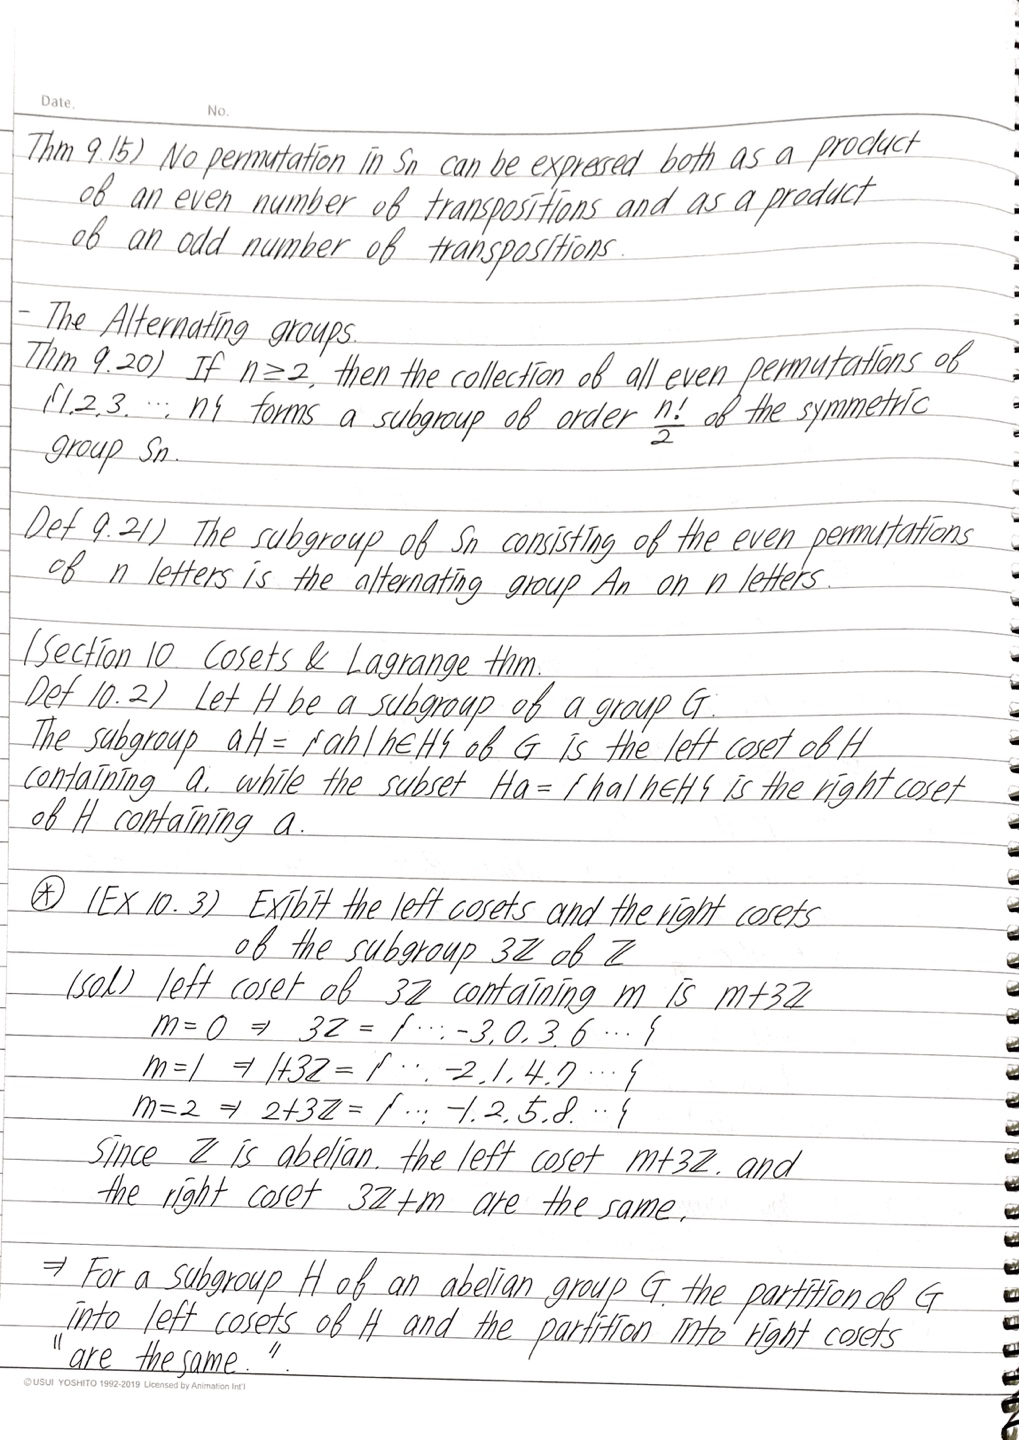 Date.
No.
Thm 9.15) No permutation in Sn can be expressed both as a product
of an even number of transpositions and as a product
of an odd number of transpositions.
- The Alternating groups.
Thm 9.20) If n≥2, then the collection of all even permutations of
{1,2,3. ⋯, n} forms a subgroup of order n!/2 of the symmetric
group Sn.
Def 9.21) The subgroup of Sn consisting of the even permutations
of n letters is the alternating group An on n letters.
(Section 10 Cosets & Lagrange thm.
Def 10.2) Let H be a subgroup of a group G.
The subgroup aH = {ah|h∈H} of G is the left coset of H
containing a. while the subset Ha = {ha|h∈H} is the right coset
of H containing a.
⊛ (Ex 10.3) Exibit the left cosets and the right cosets
of the subgroup 3ℤ of ℤ
(sol) left coset of 3ℤ containing m is m+3ℤ
m=0 ⇒ 3ℤ = { ⋯, -3,0,3,6 ⋯ }
m=1 ⇒ 1+3ℤ = { ⋯, -2,1,4,7 ⋯ }
m=2 ⇒ 2+3ℤ = { ⋯, -1,2,5,8. ⋯ }
since ℤ is abelian. the left coset m+3ℤ. and
the right coset 3ℤ+m are the same.
⇒ For a subgroup H of an abelian group G. the partition of G
into left cosets of H and the partition into right cosets
"are the same.".
©USUI YOSHITO 1992-2019 Licensed by Animation Int'l